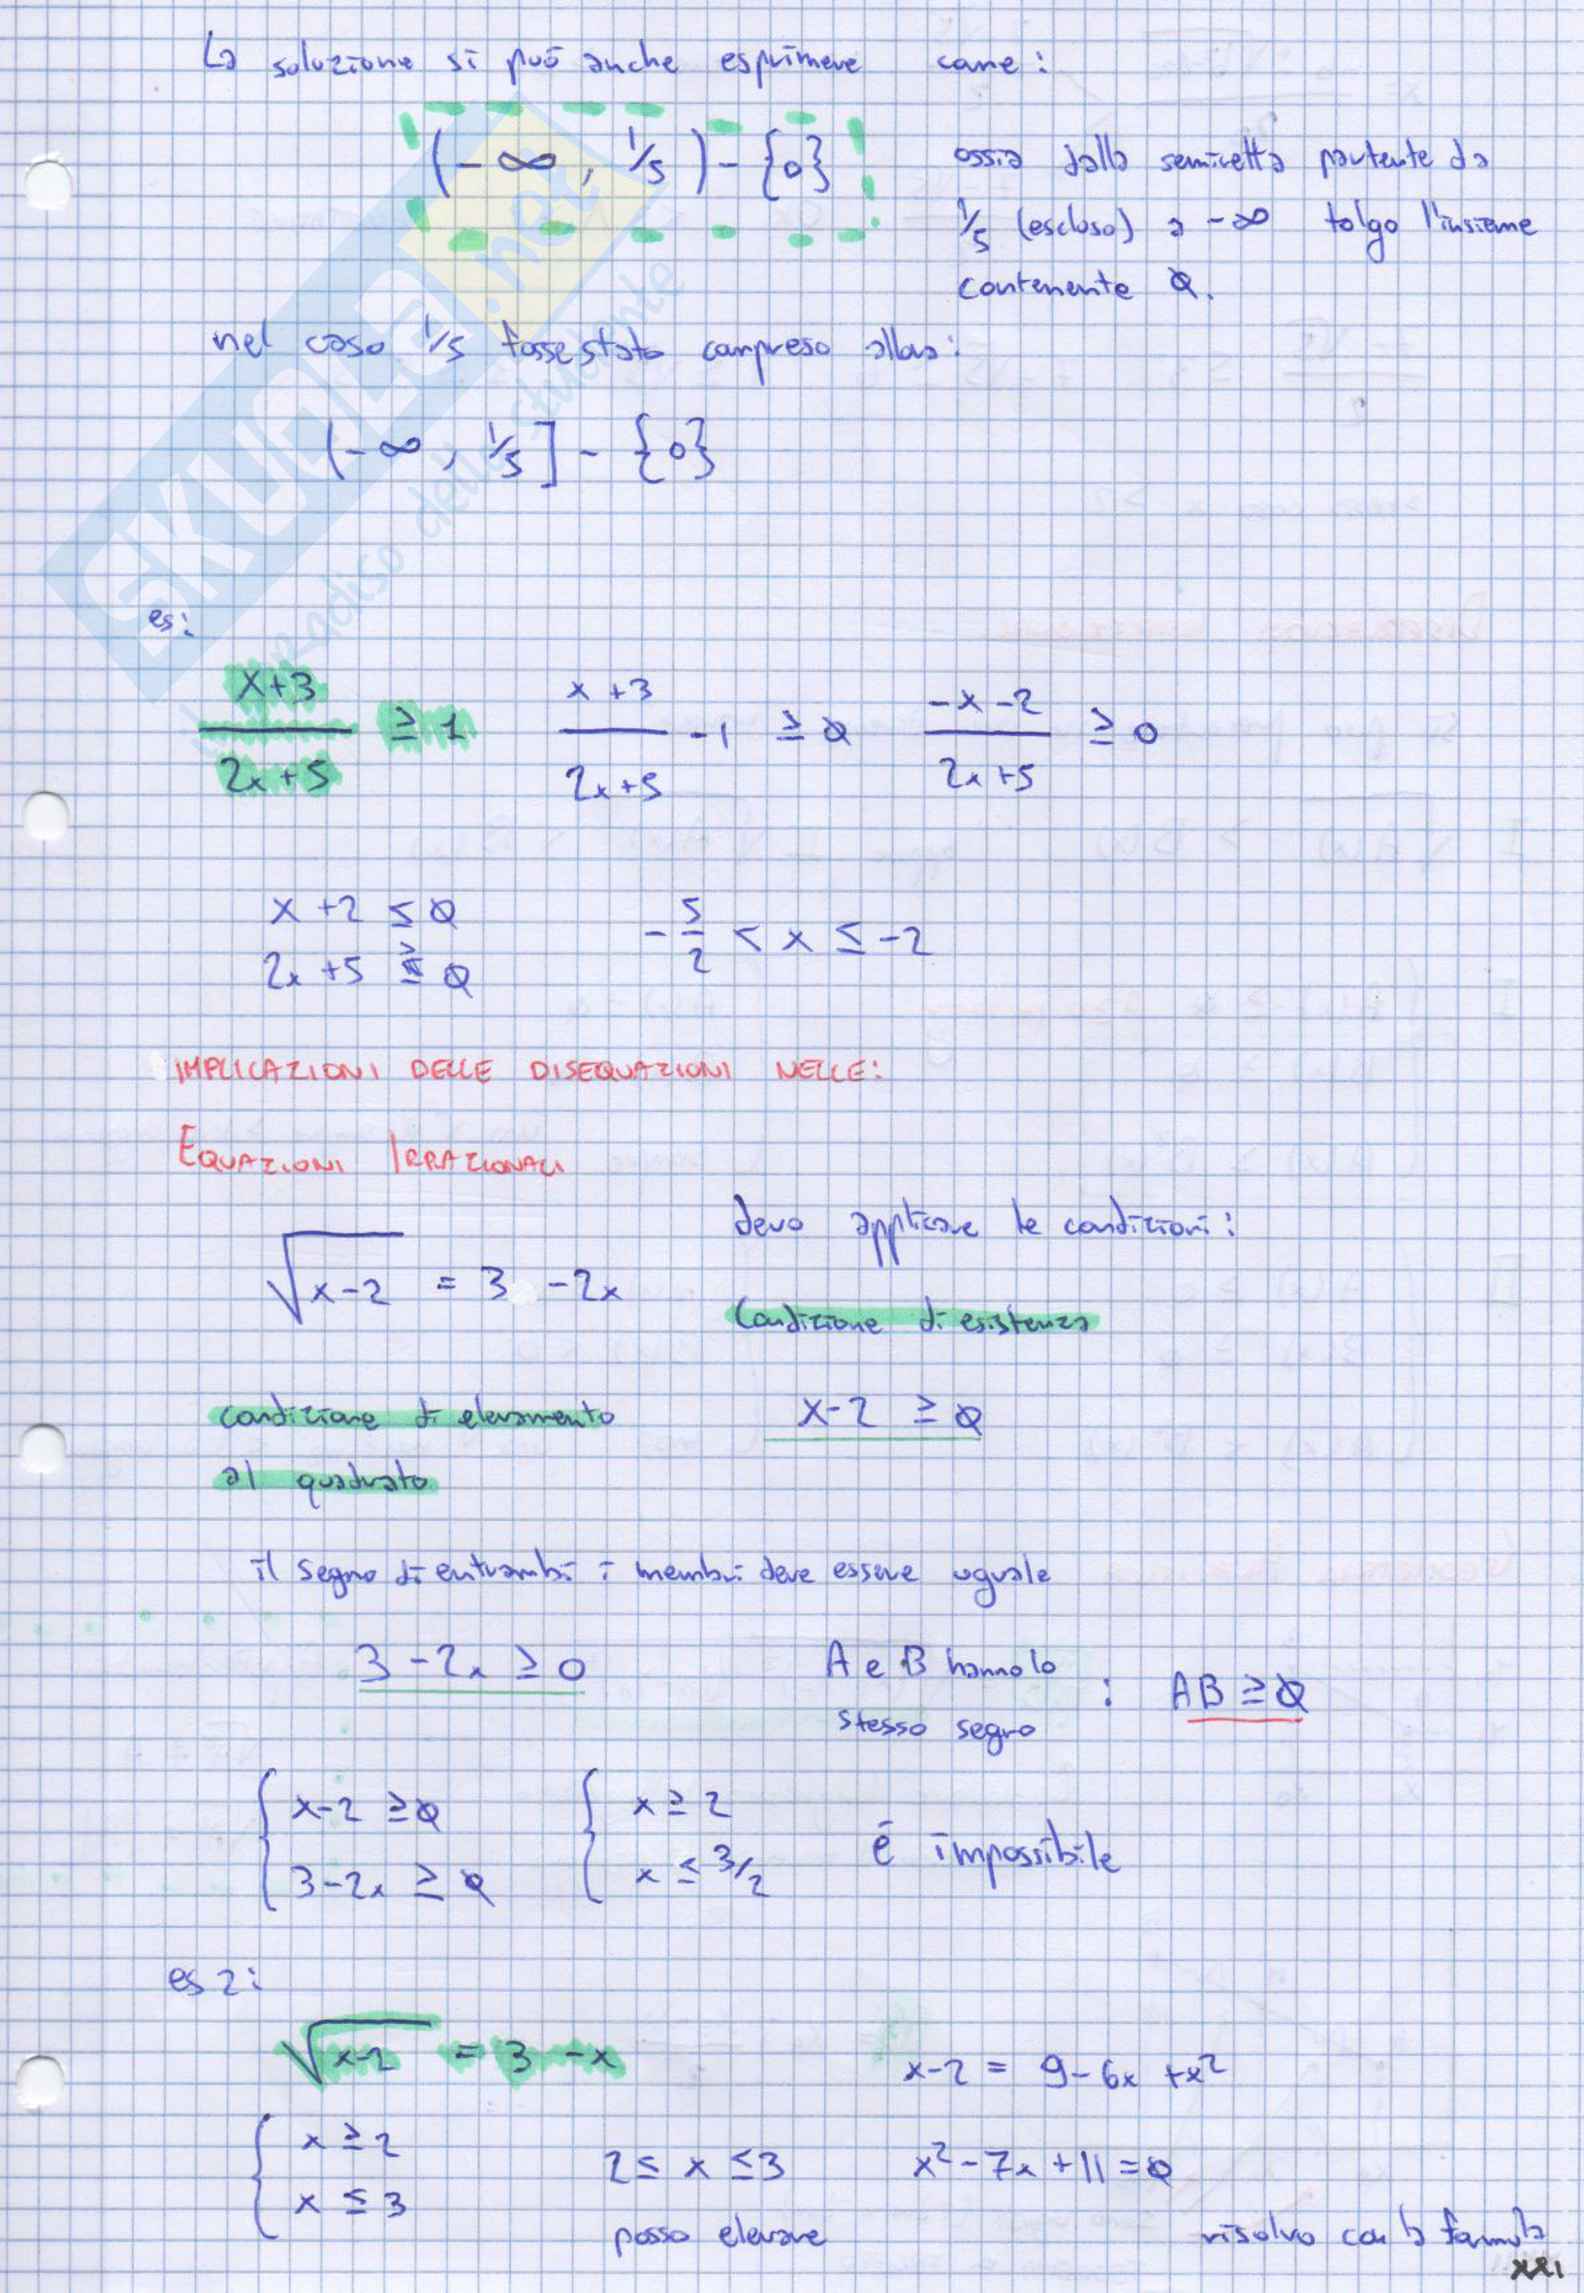 La soluzione si può anche esprimere come:
(-∞, 1/5) - {0}
ossia dalla semiretta partente da
1/5 (escluso) a -∞ tolgo l'insieme
contenente 0.
nel caso 1/5 fosse stato compreso allora:
(-∞, 1/5] - {0}
es:
(x+3)/(2x+5) ≥ 1   (x+3)/(2x+5) - 1 ≥ 0   (-x-2)/(2x+5) ≥ 0
x+2 ≤ 0
2x+5 ≥ 0
-5/2 < x ≤ -2
IMPLICAZIONI DELLE DISEQUAZIONI NELLE:
EQUAZIONI IRRAZIONALI
√(x-2) = 3 - 2x
devo applicare le condizioni:
Condizione di esistenza
x-2 ≥ 0
condizione di elevamento
al quadrato
il segno di entrambi i membri deve essere uguale
3-2x ≥ 0
A e B hanno lo
stesso segno
: AB ≥ 0
{ x-2 ≥ 0   { x ≥ 2
{ 3-2x ≥ 0   { x ≤ 3/2
é impossibile
es 2:
√(x-2) = 3 - x
x-2 = 9-6x+x²
{ x ≥ 2
{ x ≤ 3
2 ≤ x ≤ 3
x²-7x+11 = 0
posso elevare
risolvo con la formula
SKUOLA.net